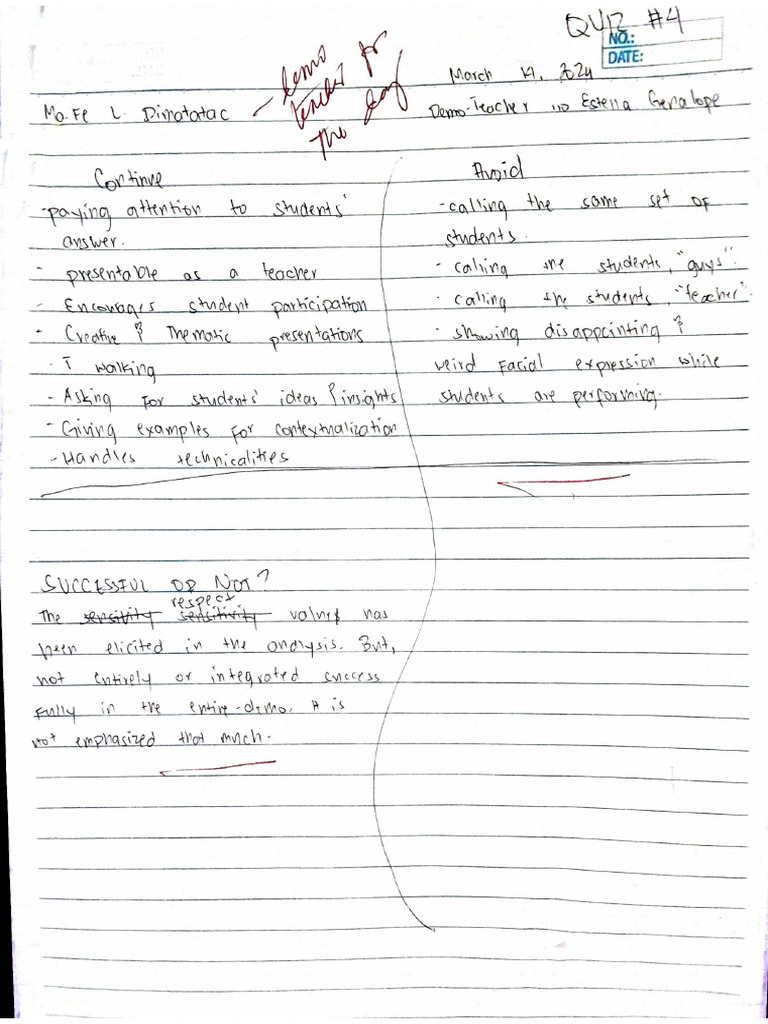 QUIZ #4
NO.:
DATE:
March 19, 2024
Ma. Fe L. Dimatatac - demo teacher for the day
Demo-Teacher: Estella Genalope
Continue
- paying attention to students'
answer.
- presentable as a teacher
- Encourages student participation
- Creative & Thematic presentations
- T walking
- Asking for students' ideas & insights
- Giving examples for contextualization
- Handles technicalities
Avoid
- calling the same set of
students.
- calling the students, "guys".
- calling the students, "teacher".
- showing disappointing &
weird facial expression while
students are performing.
SUCCESSFUL OR NOT?
respect
The sensitivity sensitivity values has
been elicited in the analysis. But,
not entirely or integrated success
fully in the entire demo. It is
not emphasized that much.